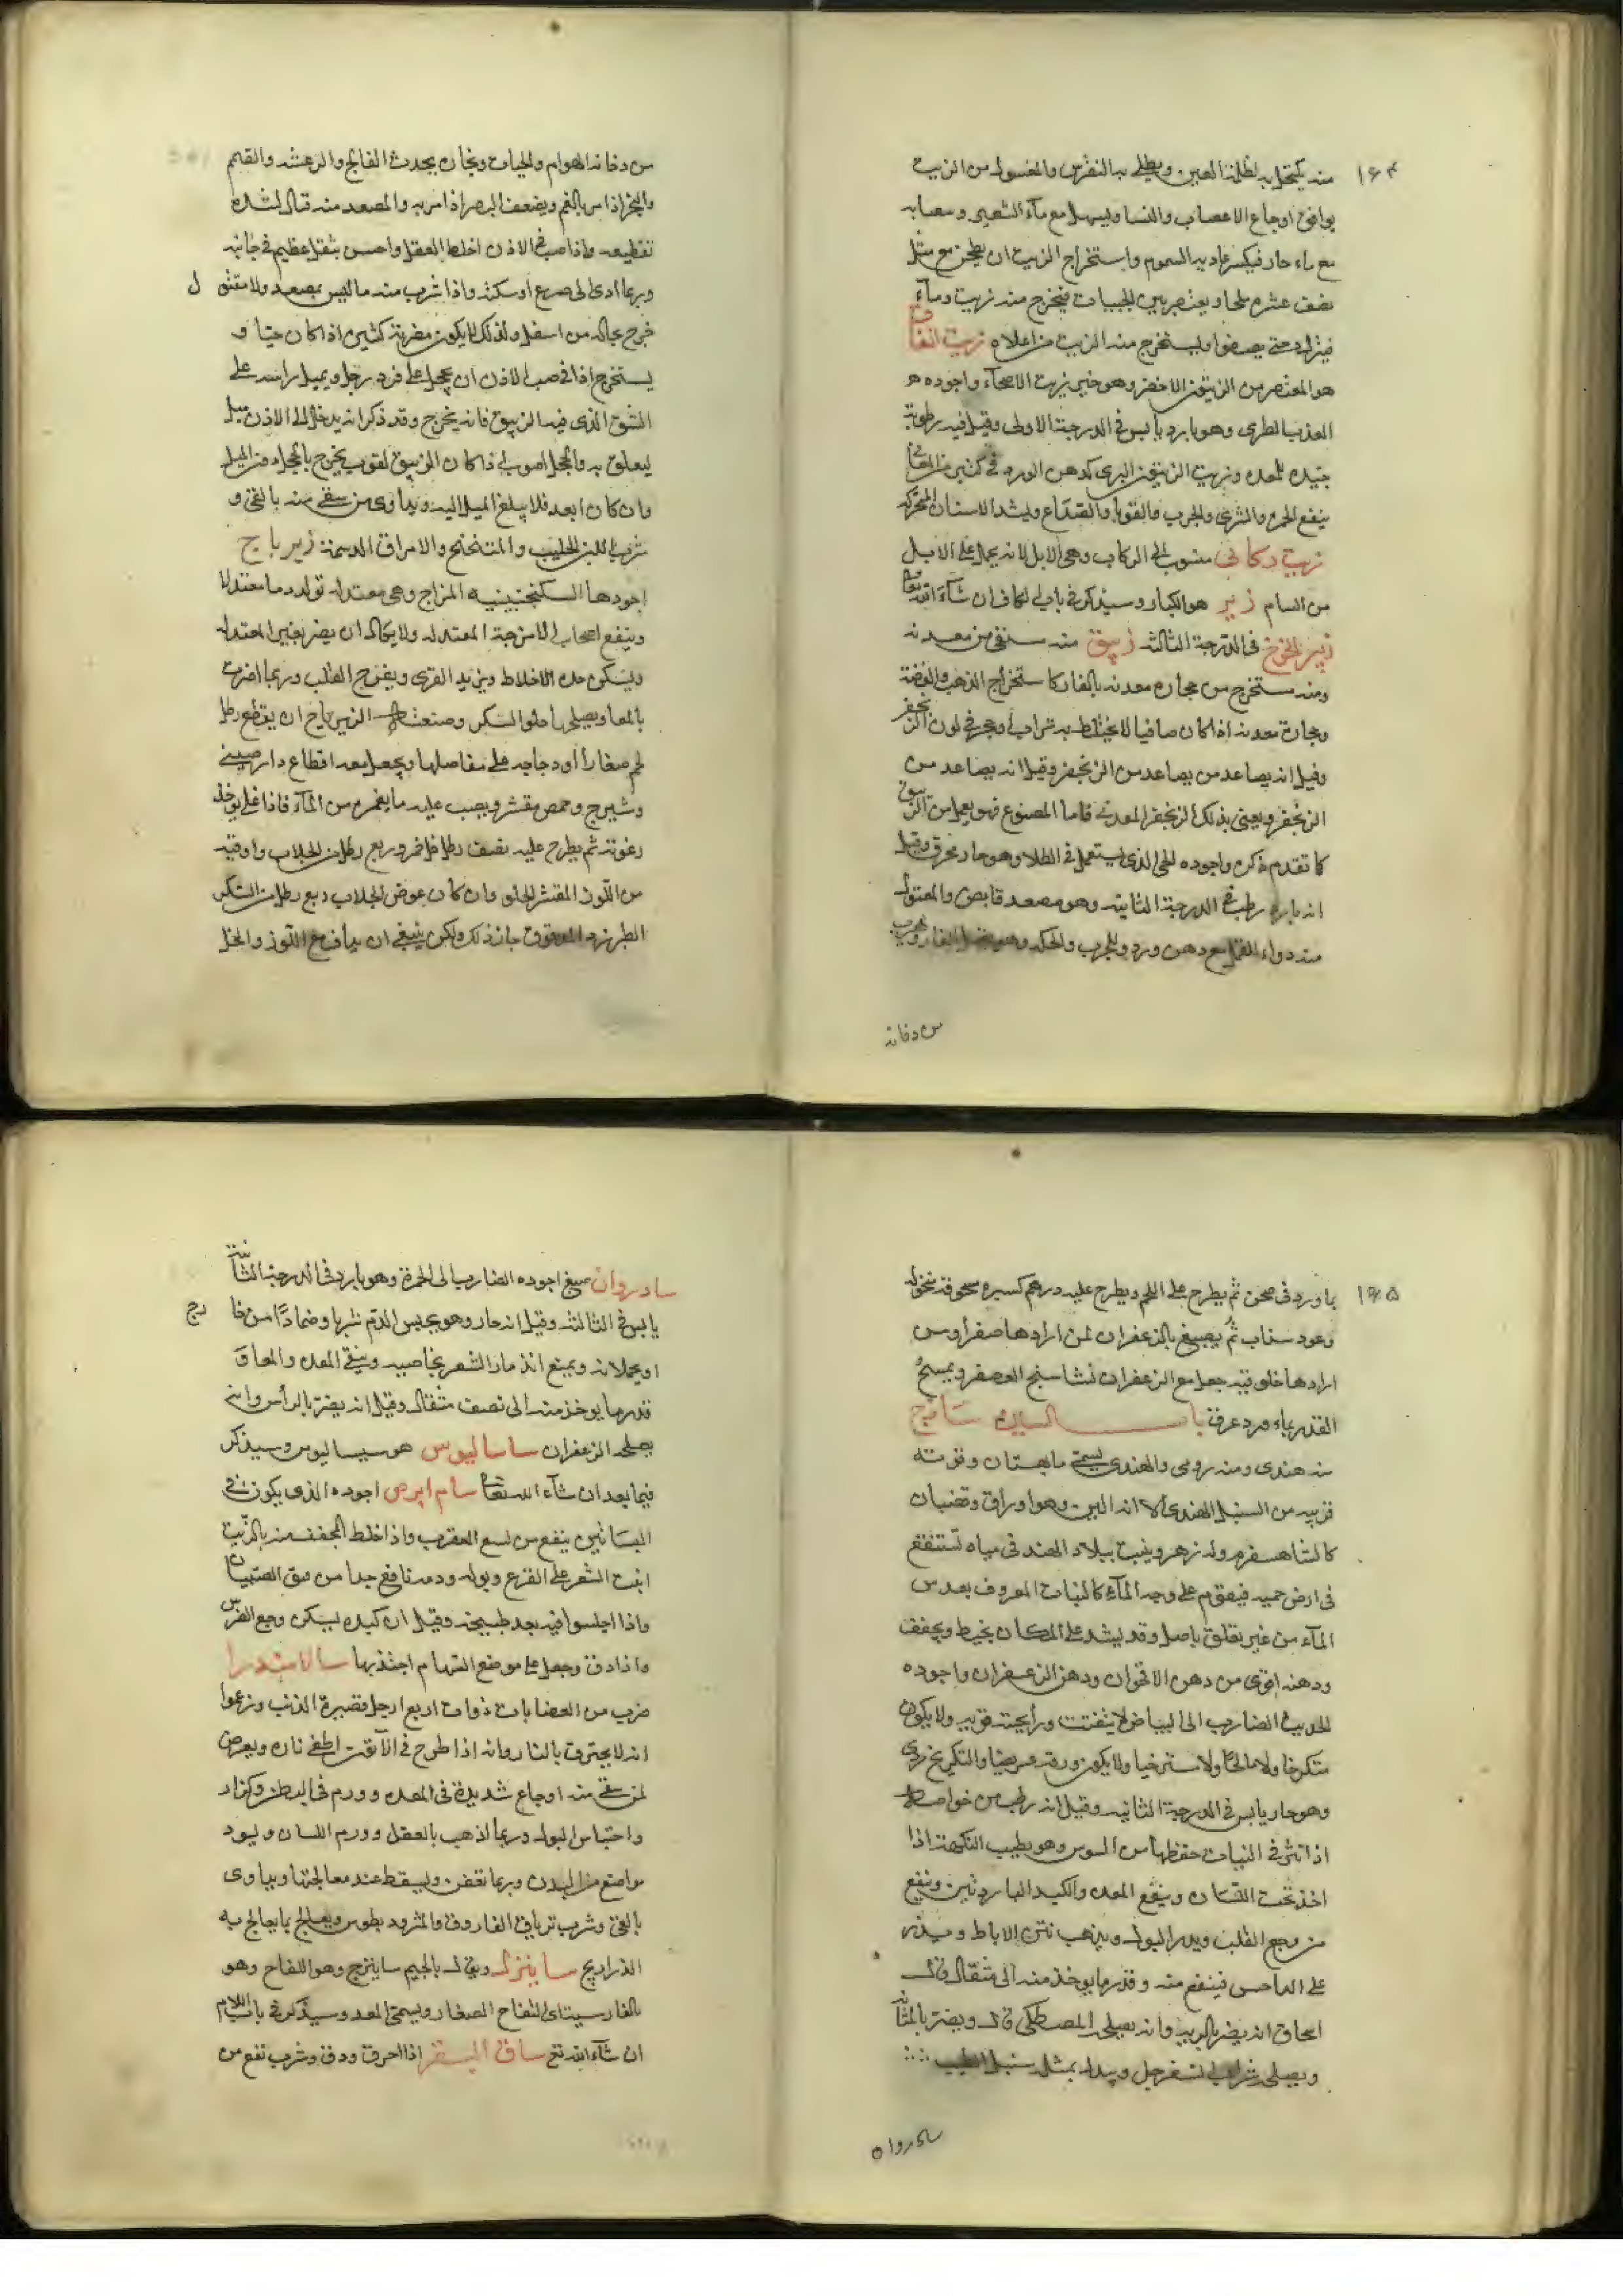 ١٦٤
منه يكتحل به لظلمة العين ويطلى به النقرس والمغسول من الزيت
يوافق اوجاع الاعصاب والنسا ويسهل مع ماء الشعير ومصابه
مع ماء حار فيكسر عادية السموم واستخراج الزيت ان يطحن مع مثل
نصف عشره ملحا ويعتصر بين الحبيبات فيخرج منه زيت وماء
فيترك حتى يصفوا ويستخرج منه الزيت من اعلاه زيت انفاق
هو المعتصر من الزيتون الاخضر وهو خير زيت الاصحاء واجوده
العذب الطرى وهو بارد يابس فى الدرجة الاولى وقيل فيه رطوبة
جيده للمعده وزيت الزيتون البرى كدهن الورد فى كثير من المعانى
ينفع الحمره والشرى والجرب والقوبا والصداع ويشد الاسنان المتحركه
زيت ركابى منسوب الى الركاب وهى الابل لانه يحمل على الابل
من الشام زير هو الكبار وسيذكر فى باب الكاف ان شاء الله تعالى
فى الدرجة الثالثه زيبق منه مستقى من معدنه
ومنه مستخرج من حجاره معدنه بالنار كاستخراج الذهب والفضة
وحجارة معدنه اذا كان صافيا لا يختلط به تراب وحجر فى لون الزنجفر
وقيل انه يصاعد من يصاعد من الزنجفر وقيل انه يصاعد من
الزنجفر ويعنى بذلك الزنجفر المعدنى فاما المصنوع فهو يعمل من الزيبق
كما تقدم ذكره واجوده الحى الذى يستعمل فى الطلا وهو حار محرق وقيل
انه بارد رطب فى الدرجة الثانيه وهو مصعد قابض والمقتول
منه دواء القمل مع دهن ورد وللجرب والحكه
من دخانه
من دخانه الهوام والحيات وبخاره يحدث الفالج والرعشه والقمم
والبخر اذا مر بالفم ويضعف البصر اذا مر به والمصعد منه قتال لشدة
تقطيعه واذا صب فى الاذن اخلط العقل واحس بثقل عظيم فى جانبه
وربما ادى الى صرع او سكته واذا شرب منه ما ليس بمصعد ولا مقتول
خرج بحاله من اسفل ولذلك لا يكون مضرته كثيره اذا كان حيا و
يستخرج اذا صب فى الاذن ان يحجل على فرد رجل ويميل راسه على
الشق الذى فيه الزيبق فانه يخرج وقد ذكر انه يدخل الى الاذن ميل
ليعلق به والحجل اصوب اذا كان الزيبق لقرب يخرج بالحجل دون الميل
وان كان ابعد فلا يبلغ الميل اليه ويداوى من سقى منه بالقى و
شرب اللبن الحليب والتنحنح والامراق الدسمة زيرباج
اجودها السكنجبينيه المزاج وهى معتدله تولد دما معتدلا
وينفع اصحاب الامزجة المعتدله ولا يكاد ان يضر بغير المعتدله
ويسكن حدة الاخلاط ويزيد القوى ويفرح القلب وربما اضرت
بالمعا ويصلحها حلو السكر وصنعة الزيرباج ان يقطع رطل
لحم صغارا او دجاجه على مفاصلها ويجعل معه اقطاع دارصينى
وشيرج وحمص مقشر ويصب عليه ما يغمره من الماء فاذا غلى يوخذ
رغوته ثم يطرح عليه نصف رطل خل خمر وربع رطل من الجلاب واوقيه
من اللوز المقشر الحلو وان كان عوض الجلاب ربع رطل من السكر
الطبرزد المدقوق جاز ذلك ولكن ينبغى ان يداف مع اللوز والخل
١٦٥
بماورد فى صحن ثم يطرح على اللحم ويطرح عليه درهم كسبره مسحوقه منخوله
وعود سذاب ثم يصبغ بالزعفران لمن ارادها صفرا ومن
ارادها خلوقيه جعل مع الزعفران نشاستج العصفر ويمسح
القدر بماء ورد عرفه باب السين ساذج
منه هندى ومنه رومى والهندى يسمى مابهستان وقوته
قريبه من السنبل الهندى الا انه الين وهو اوراق وقضبان
كالشاهسفرم وله زهر وينبت ببلاد الهند فى مياه تستنقع
فى ارض حميه فيقوم على وجه الماء كالنبات المعروف بعدس
الماء من غير تعلق باصل وقد يشد على المكان بخيط ويجفف
ودهنه اقوى من دهن الاقحوان ودهن الزعفران واجوده
الحديث الضارب الى البياض لا يتفتت ورائحته قويه ولا يكون
متكرجا ولا مالحا ولا مسترخيا ولا يكون ورقه عريضا والتكرج ردى
وهو حار يابس فى الدرجة الثانيه وقيل انه رطب من خواصه
اذا نثر فى الثياب حفظها من السوس وهو يطيب النكهة اذا
اخذ تحت اللسان وينفع المعده والكبد الباردتين وينفع
من وجع القلب ويدر البول ويذهب نتن الاباط ويذر
على الداحس فينفع منه وقدر ما يوخذ منه الى مثقال قال
اسحاق انه يضر بالريه وانه يصلحه المصطكى قال ويضر بالمثانه
ويصلحه شراب السفرجل وبدله بمثله سنبل الطيب
سادروان
سادروان صمغ اجوده الضارب الى الحمرة وهو بارد فى الدرجة الثانية
يابس فى الثالثه وقيل انه حار وهو يحبس الدم شربا وضمادا من خا
رج
او يحملانه ويمنع انذمار الشعر بخاصيه وينقى المعده والمعا و
قدر ما يوخذ منه الى نصف مثقال وقيل انه يضر بالراس وانه
يصلحه الزعفران ساساليوس هو سيساليوس وسيذكر
فيما بعد ان شاء الله تعالى سام ابرص اجوده الذى يكون فى
البساتين ينفع من لسع العقرب واذا خلط المجفف منه بالزيت
انبت الشعر على القرع وبوله ودمه نافع جدا من فتق الصبيان
واذا اجلسوا فيه بعد طبيخه وقيل ان كبده يسكن وجع الضرس
واذا دق وجعل على موضع السهام اجتذبها سالامندرا
ضرب من العضايات ذوات اربع ارجل قصيرة الذنب وزعموا
انه لا يحترق بالنار وانه اذا طرح فى الاتون اطفى ناره ويعرض
لمن سقى منه اوجاع شديدة فى المعده وورم فى البطن وكزاز
واحتباس البول وربما اذهب بالعقل وورم اللسان ويسود
مواضع من البدن وربما تعفن ويسقط عند معالجتها ويداوى
بالقى وشرب ترياق الفاروق والمثروديطوس ويعالج بما يعالج به
الذراريح سابيزك ويقال بالجيم سابيزج وهو اللفاح وهو
بالفارسية اى التفاح الصغار ويسمى المعد وسيذكر فى باب اللام
ان شاء الله تع ساق البقر اذا احرق ودق وشرب نفع من